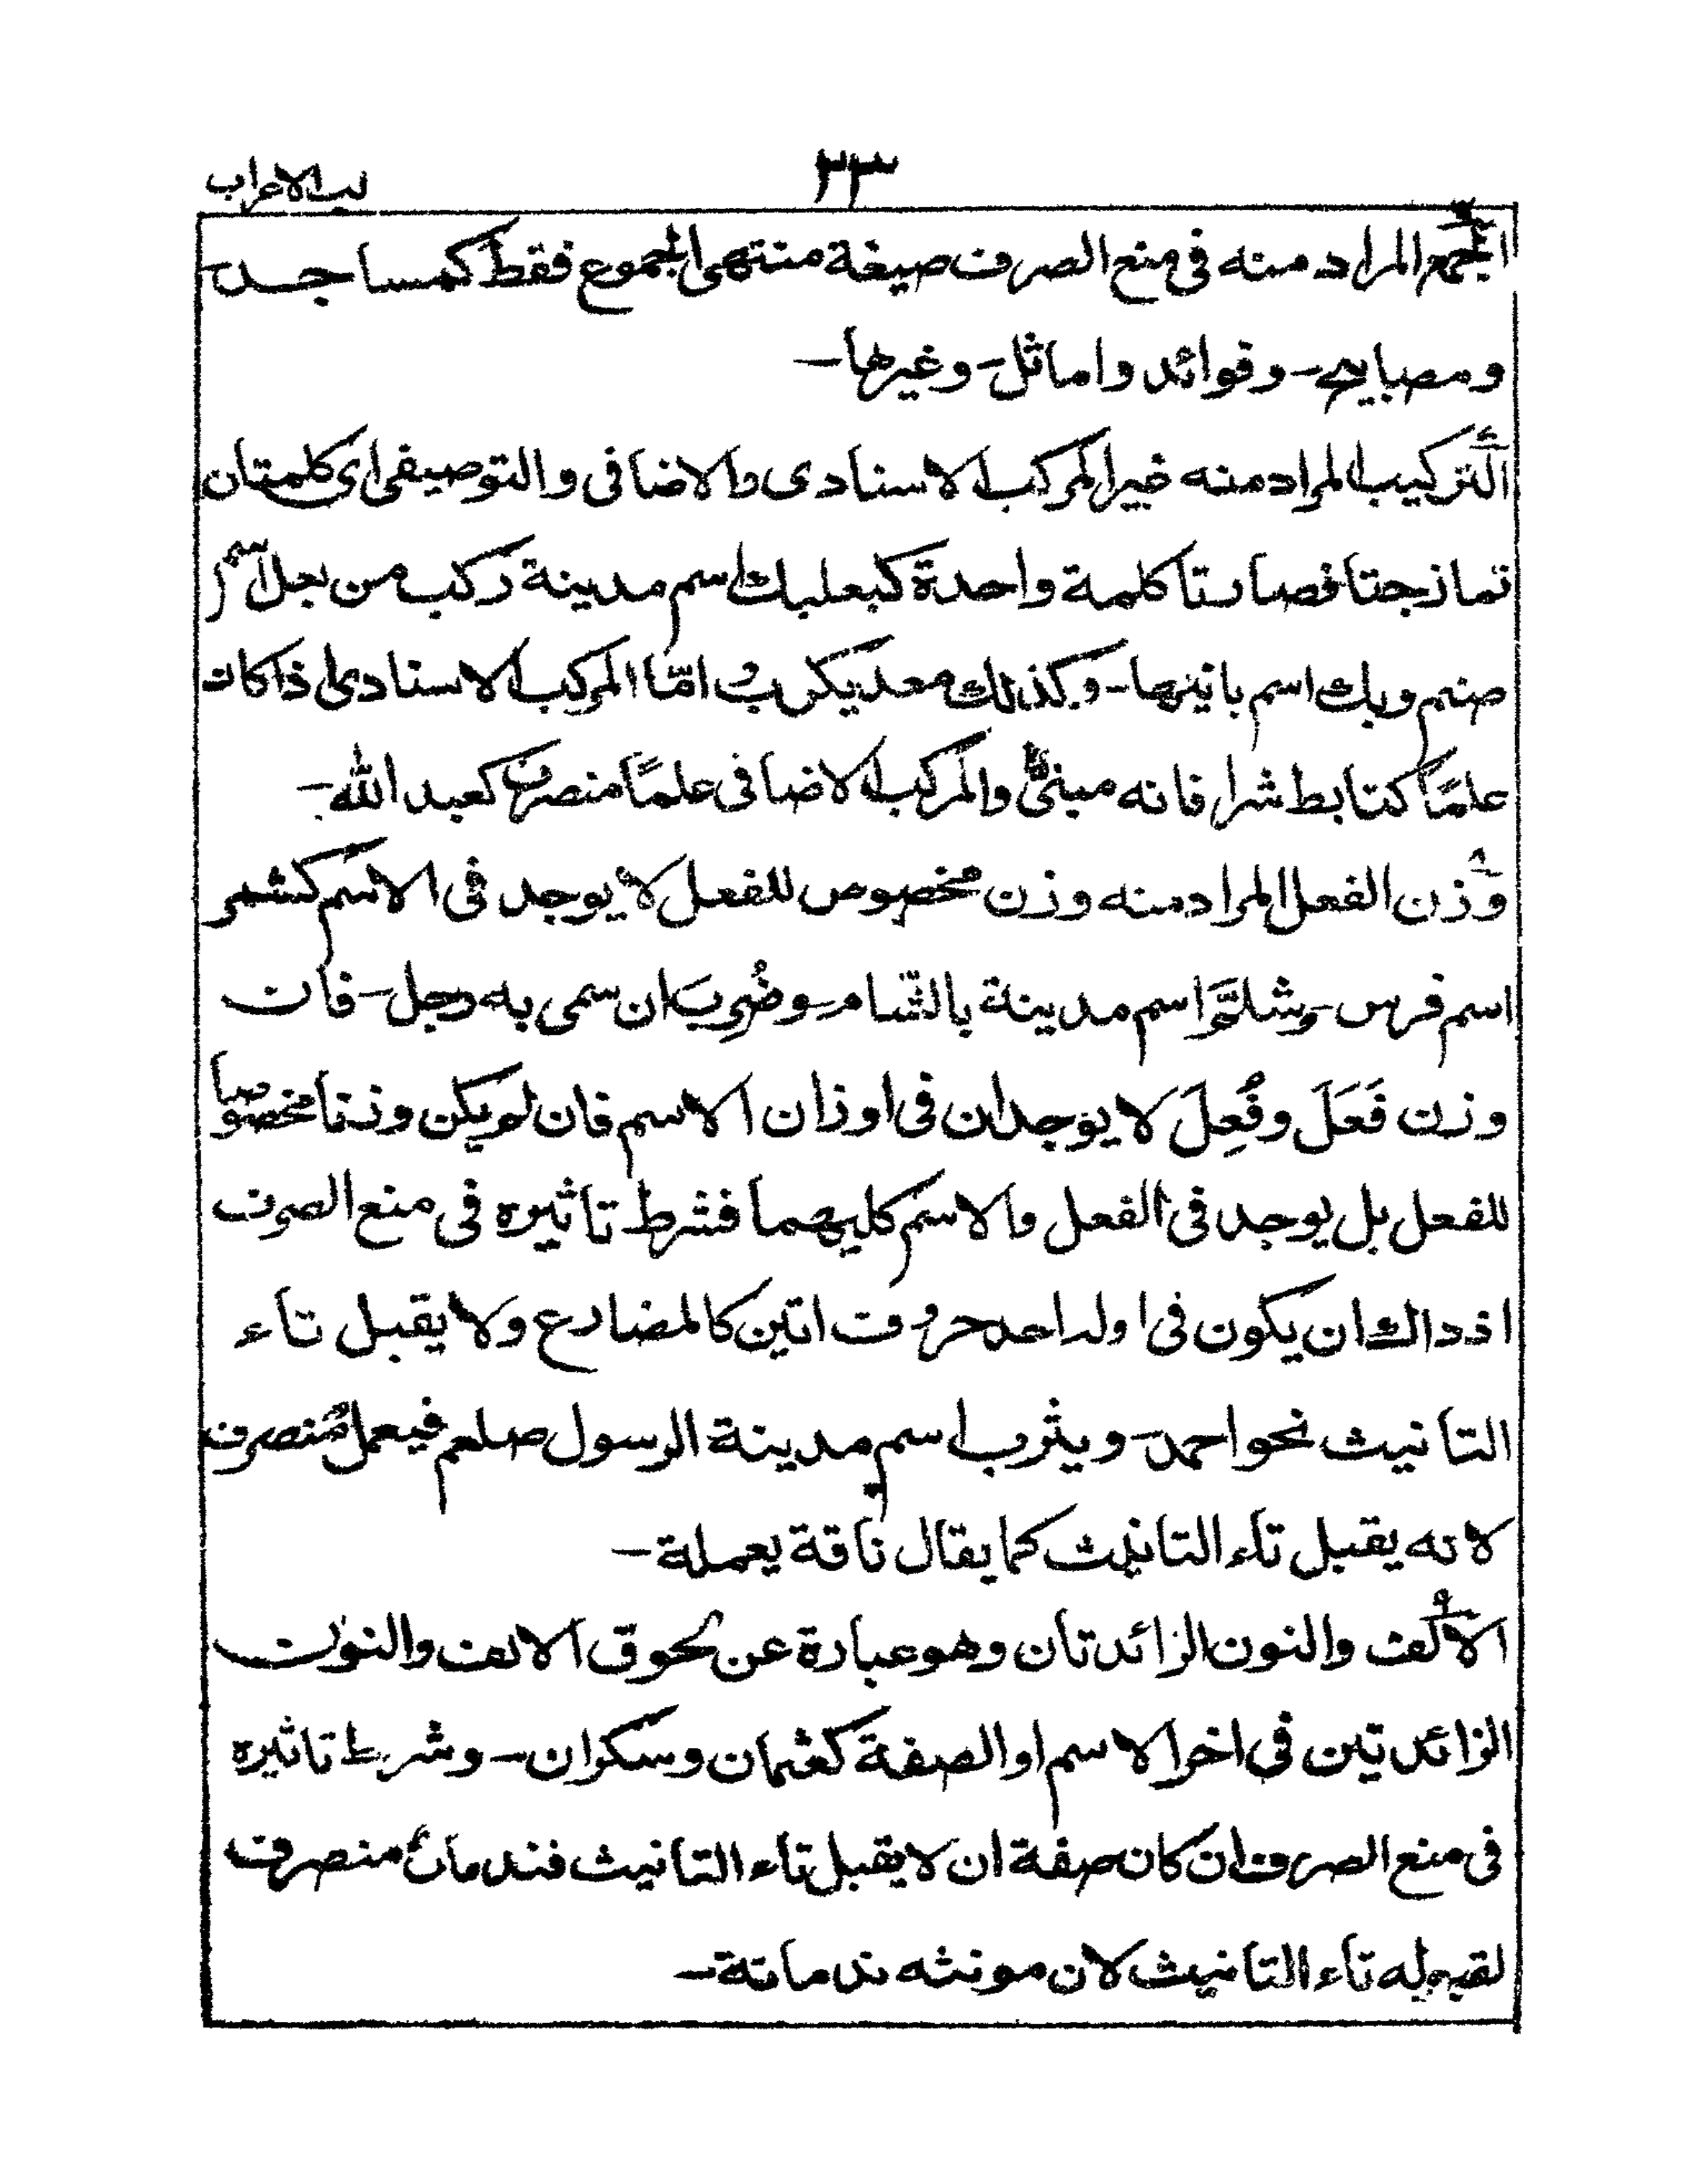 ٣٣
لب الاعراب
الجمع المراد منه فى منع الصرف صيغة منتهى الجموع فقط كمساجد
ومصابيح - وفوائد واماثل - وغيرها -
التركيب المراد منه غير المركب الاسنادى والاضافى والتوصيفى اى كلمتان
تمازجتا فصارتا كلمة واحدة كبعلبك اسم مدينة ركب من بعل اسم
صنم وبك اسم بانيها - وكذلك معديكرب امّا المركب الاسنادى اذا كان
علمًا كتابط شرا فانه مبنىٌّ والمركب الاضافى علمًا منصرف كعبد الله -
٨ وزن الفعل المراد منه وزن مخصوص للفعل لا يوجد فى الاسم كشمر
اسم فرس - وشلَّم اسم مدينة بالشام - وضُرِبَ ان سمى به رجل - فان
وزن فَعَلَ وفُعِلَ لا يوجدان فى اوزان الاسم فان لم يكن وزنا مخصوصا
للفعل بل يوجد فى الفعل والاسم كليهما فشرط تاثيره فى منع الصرف
اذ ذاك ان يكون فى اوله احد حروف اتين كالمضارع ولا يقبل تاء
التانيث نحو احمد - ويثرب اسم مدينة الرسول صلعم فيعمل منصرف
لانه يقبل تاء التانيث كما يقال ناقة يعملة -
٩ الالف والنون الزائدتان وهو عبارة عن لحوق الالف والنون
الزائدتين فى اخر الاسم او الصفة كعثمان وسكران - وشرط تاثيره
فى منع الصرف ان كان صفة ان لا يقبل تاء التانيث فندمان منصرف
لقبوله تاء التانيث لان مونثه ندمانة -